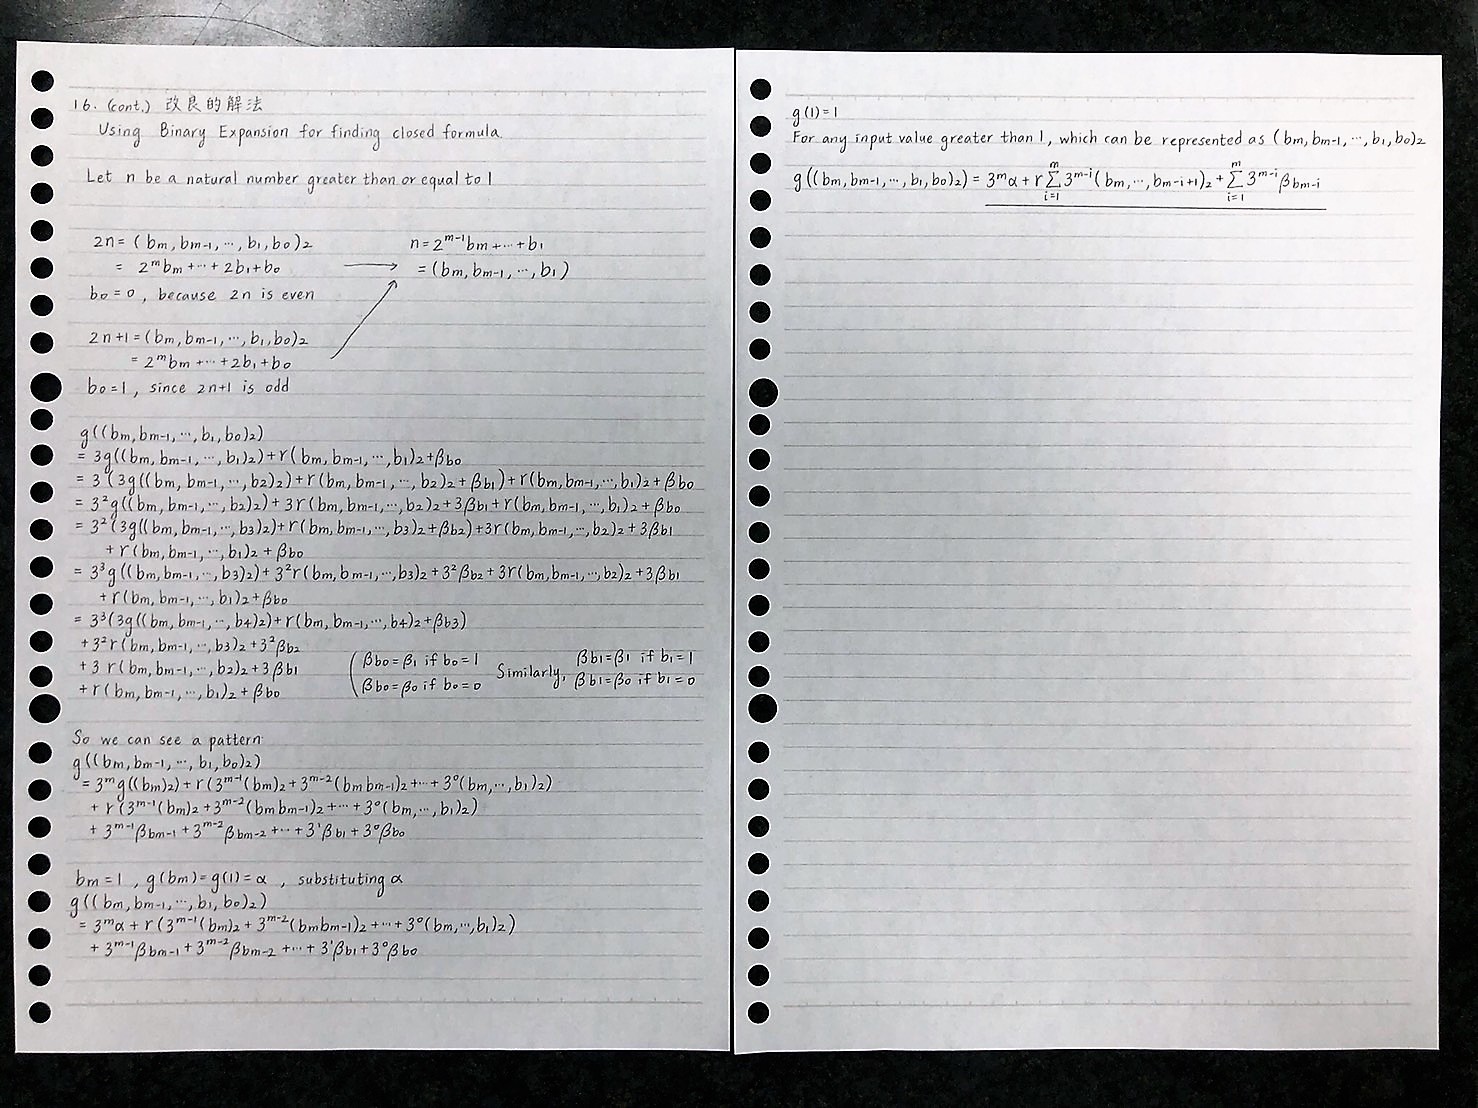 16. (cont.) 改良的解法
Using Binary Expansion for finding closed formula
Let n be a natural number greater than or equal to 1
2n = (bm, bm-1, ..., b1, b0)2
= 2^m bm + ... + 2b1 + b0
b0 = 0, because 2n is even
n = 2^m-1 bm + ... + b1
= (bm, bm-1, ..., b1)
2n+1 = (bm, bm-1, ..., b1, b0)2
= 2^m bm + ... + 2b1 + b0
b0 = 1, since 2n+1 is odd
g((bm, bm-1, ..., b1, b0)2)
= 3g((bm, bm-1, ..., b1)2) + r(bm, bm-1, ..., b1)2 + βb0
= 3(3g((bm, bm-1, ..., b2)2) + r(bm, bm-1, ..., b2)2 + βb1) + r(bm, bm-1, ..., b1)2 + βb0
= 3²g((bm, bm-1, ..., b2)2) + 3r(bm, bm-1, ..., b2)2 + 3βb1 + r(bm, bm-1, ..., b1)2 + βb0
= 3²(3g((bm, bm-1, ..., b3)2) + r(bm, bm-1, ..., b3)2 + βb2) + 3r(bm, bm-1, ..., b2)2 + 3βb1
+ r(bm, bm-1, ..., b1)2 + βb0
= 3³g((bm, bm-1, ..., b3)2) + 3²r(bm, bm-1, ..., b3)2 + 3²βb2 + 3r(bm, bm-1, ..., b2)2 + 3βb1
+ r(bm, bm-1, ..., b1)2 + βb0
= 3³(3g((bm, bm-1, ..., b4)2) + r(bm, bm-1, ..., b4)2 + βb3)
+ 3²r(bm, bm-1, ..., b3)2 + 3²βb2
+ 3r(bm, bm-1, ..., b2)2 + 3βb1
+ r(bm, bm-1, ..., b1)2 + βb0
(βb0 = β1 if b0 = 1
βb0 = β0 if b0 = 0
Similarly, βb1 = β1 if b1 = 1
βb1 = β0 if b1 = 0
So we can see a pattern
g((bm, bm-1, ..., b1, b0)2)
= 3^m g((bm)2) + r(3^m-1(bm)2 + 3^m-2(bm bm-1)2 + ... + 3^0(bm, ..., b1)2)
+ r(3^m-1(bm)2 + 3^m-2(bm bm-1)2 + ... + 3^0(bm, ..., b1)2)
+ 3^m-1 βbm-1 + 3^m-2 βbm-2 + ... + 3^1 βb1 + 3^0 βb0
bm = 1, g(bm) = g(1) = α, substituting α
g((bm, bm-1, ..., b1, b0)2)
= 3^m α + r(3^m-1(bm)2 + 3^m-2(bm bm-1)2 + ... + 3^0(bm, ..., b1)2)
+ 3^m-1 βbm-1 + 3^m-2 βbm-2 + ... + 3^1 βb1 + 3^0 βb0
g(1) = 1
For any input value greater than 1, which can be represented as (bm, bm-1, ..., b1, b0)2
g((bm, bm-1, ..., b1, b0)2) = 3^m α + r Σ_{i=1}^{m} 3^m-i (bm, ..., bm-i+1)2 + Σ_{i=1}^{m} 3^m-i βbm-i